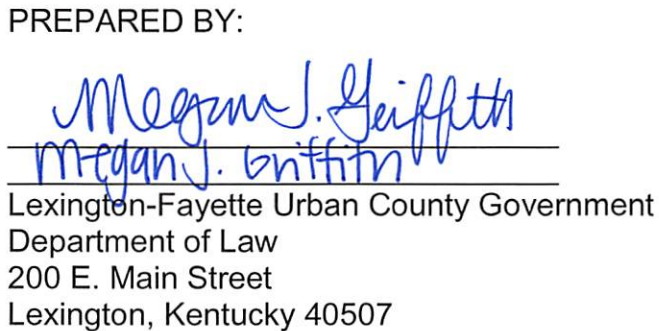 PREPARED BY:
Megan J. Griffith
Megan J. Griffith
Lexington-Fayette Urban County Government
Department of Law
200 E. Main Street
Lexington, Kentucky 40507